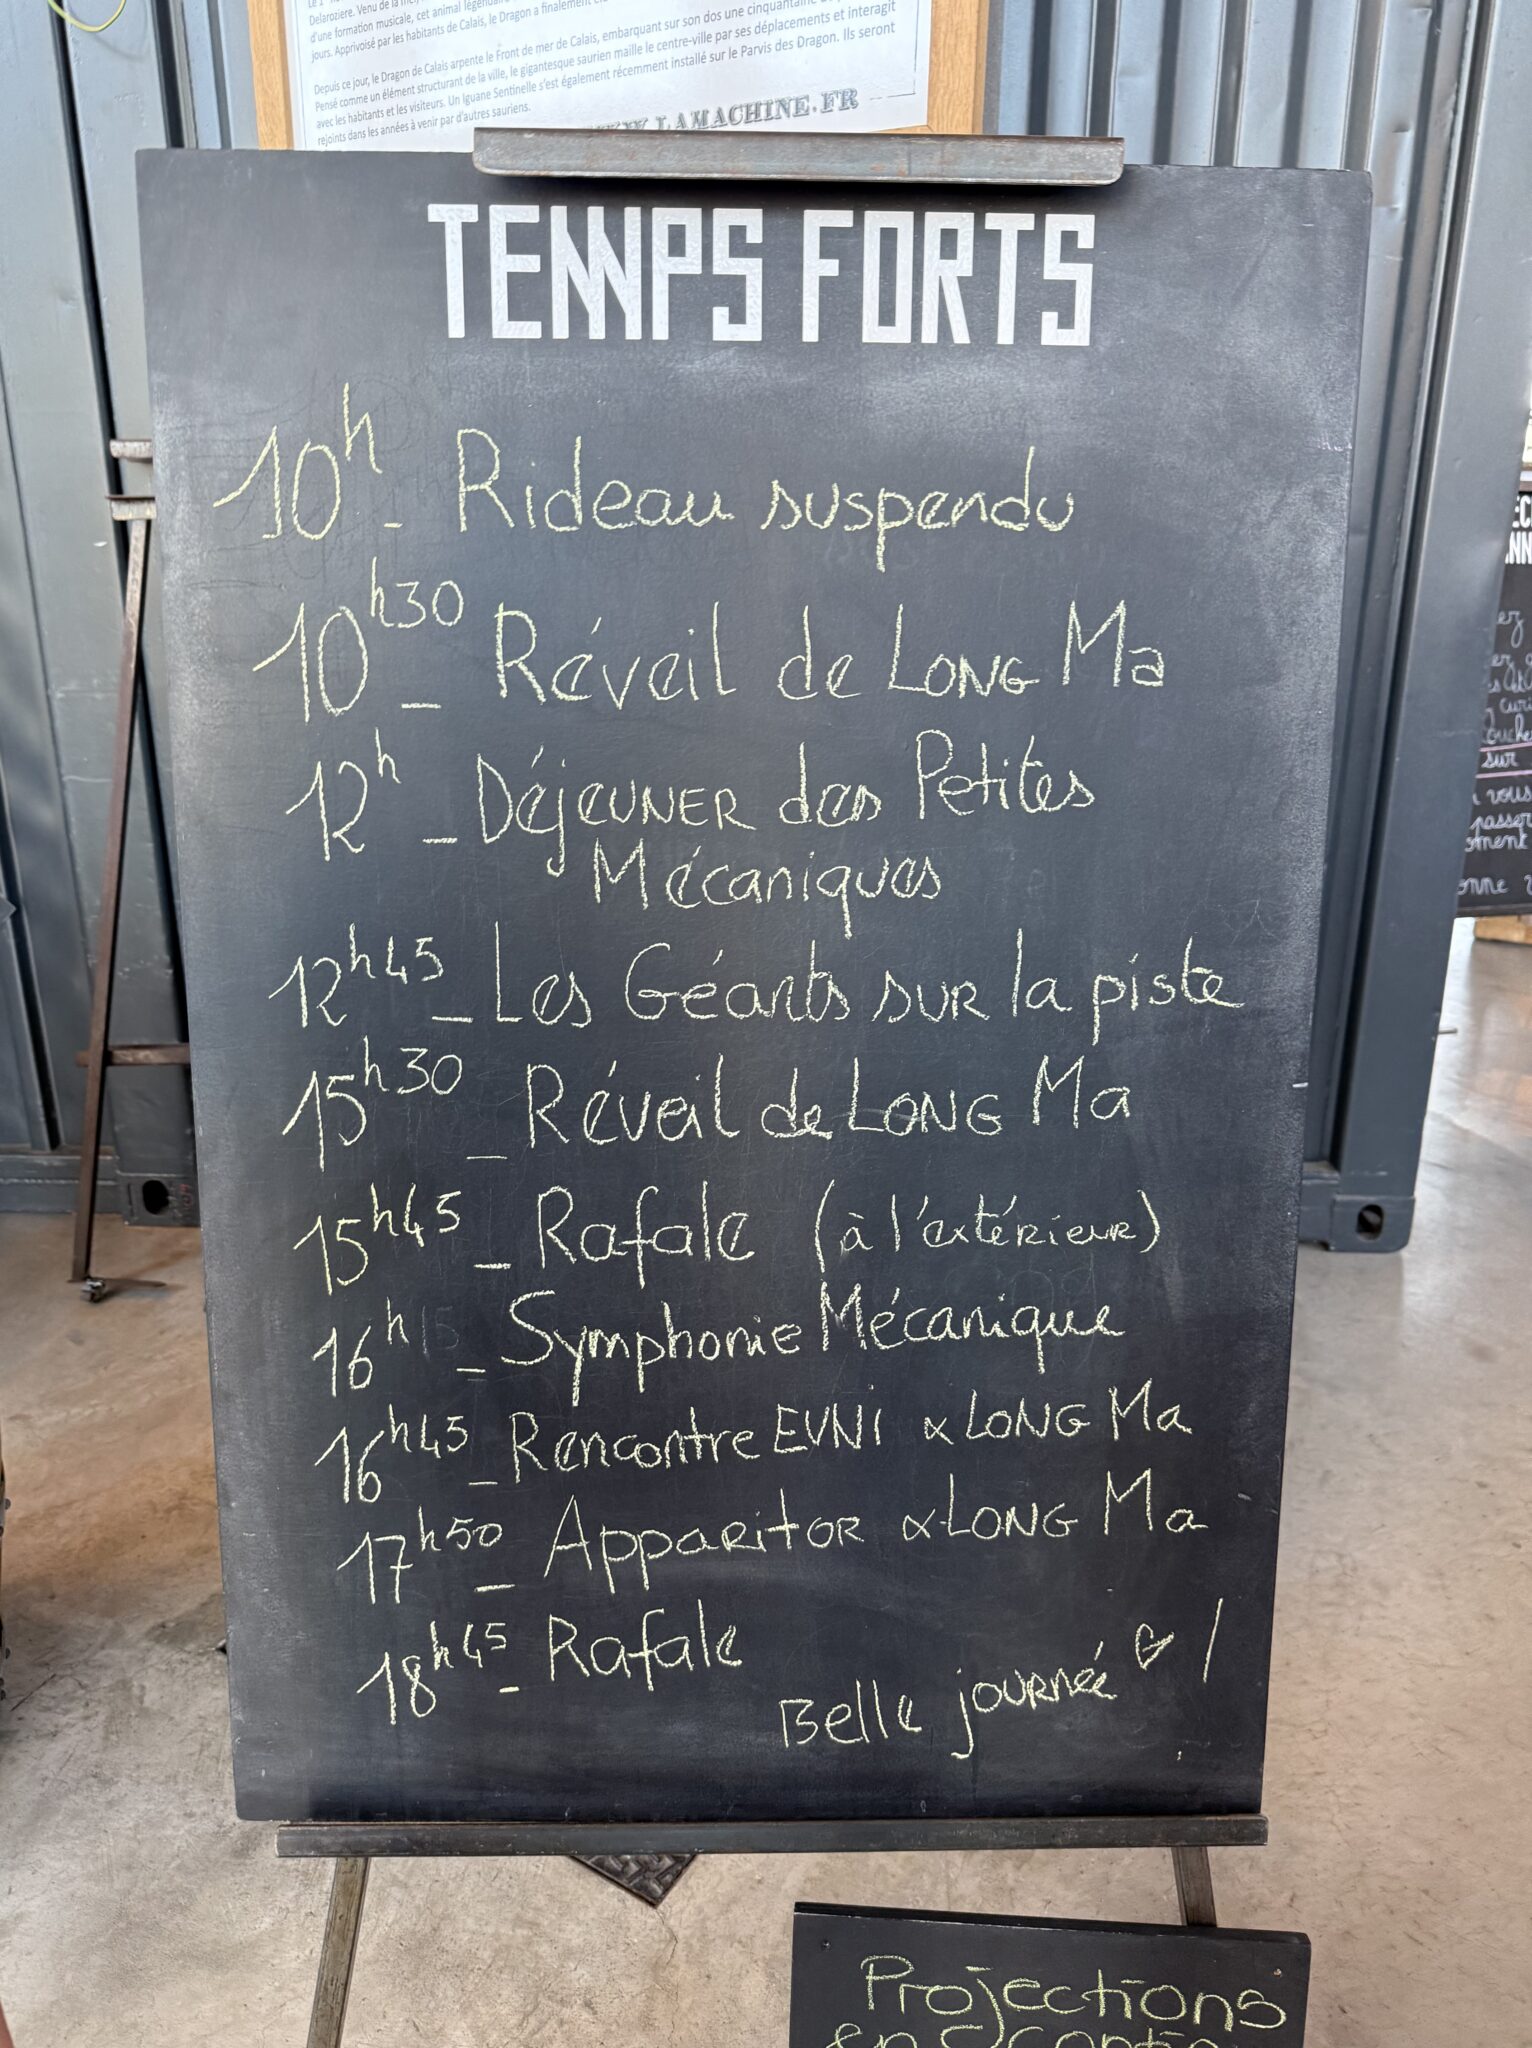 Delaroziere. Venu de la
d'une formation musicale, cet animal légendaire
jours. Apprivoisé par les habitants de Calais, le Dragon a finalement
Depuis ce jour, le Dragon de Calais arpente le Front de mer de Calais, embarquant sur son dos une cinquantaine
Pensé comme un élément structurant de la ville, le gigantesque saurien maille le centre-ville par ses déplacements et interagit
avec les habitants et les visiteurs. Un Iguane Sentinelle s'est également récemment installé sur le Parvis des Dragon. Ils seront
rejoints dans les années à venir par d'autres sauriens.
LAMACHINE.FR
TEMPS FORTS
10h - Rideau suspendu
10h30 - Réveil de LONG Ma
12h - Déjeuner des Petites
Mécaniques
12h45 - Les Géants sur la piste
15h30 - Réveil de LONG Ma
15h45 - Rafale (à l'extérieur)
16h15 - Symphonie Mécanique
16h45 - Rencontre EVNI & LONG Ma
17h50 - Apparitor & LONG Ma
18h45 - Rafale
Belle journée ♡ !
Projections
sur
vous
passer